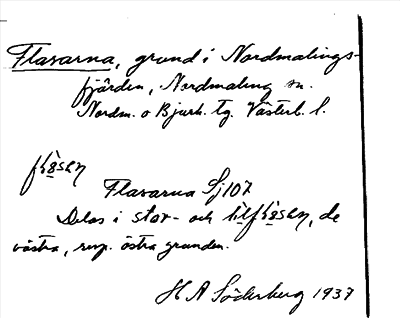 Flasarna, grund i Nordmalings-
fjärden, Nordmaling sn.
Nordm. o Bjurh. tg. Västerb. l.
Flasarna Sj 107
Delas i stor- och, de
västra, resp. östra grunden.
H A Söderberg 1937